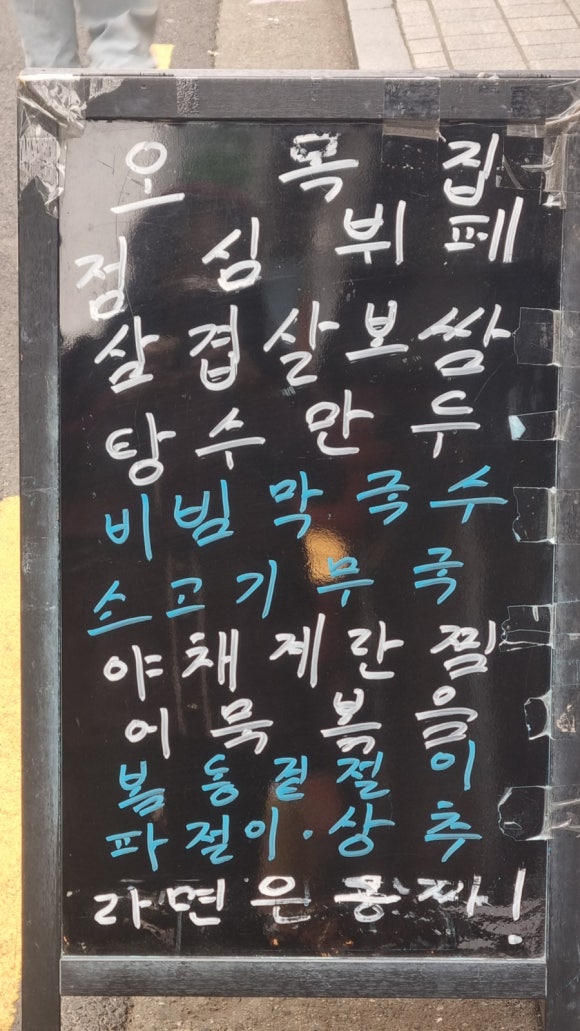 오목집
점심뷔페
삼겹살보쌈
탕수만두
비빔막국수
소고기무국
야채계란찜
어묵볶음
봄동겉절이
파절이·상추
라면은 공짜!